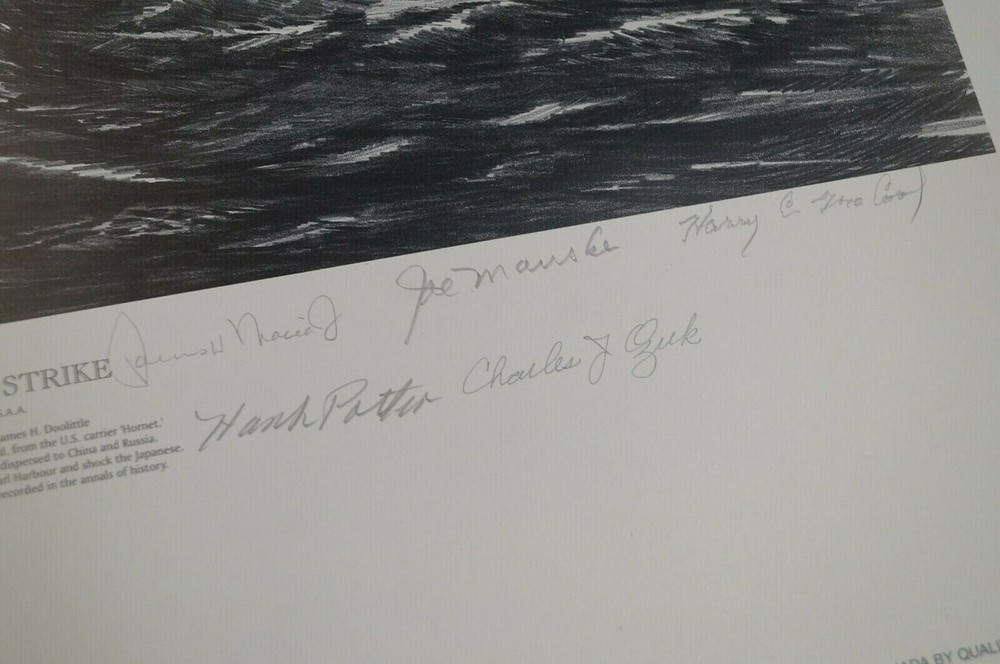 Harry C. McCool
Joe Manske
James H Macia Jr
STRIKE
Charles J Ozuk
Hank Potter
S.A.A.
ames H. Doolittle
d. from the U.S. carrier 'Hornet.'
dispersed to China and Russia.
arl Harbour and shock the Japanese.
recorded in the annals of history.
ADA BY QUALI